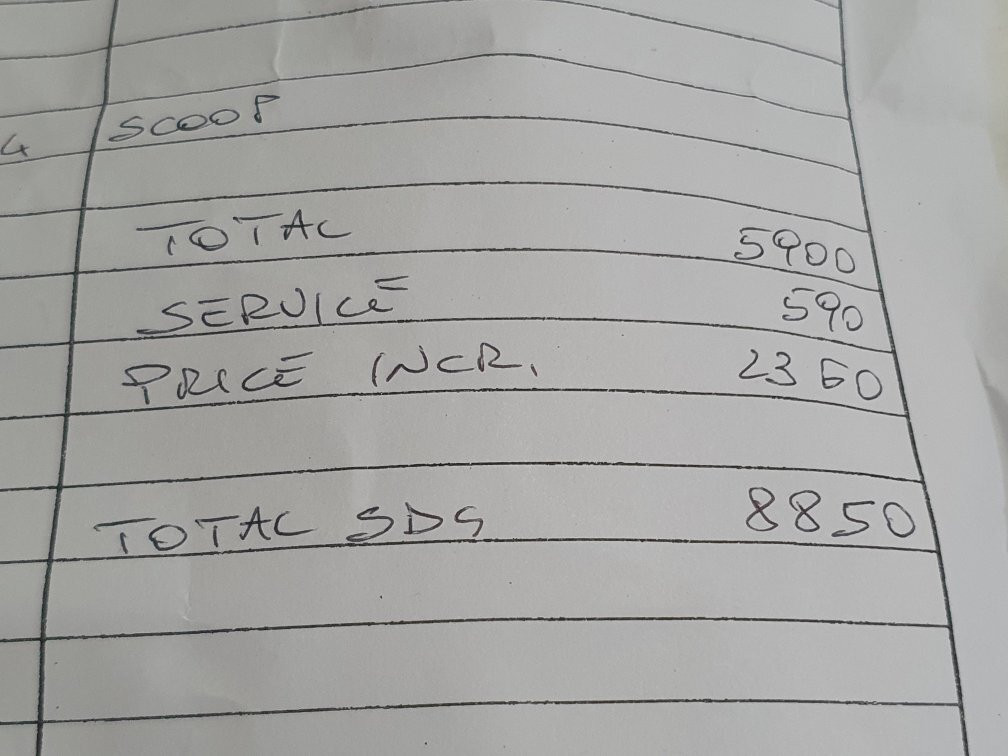 4 SCOOP
TOTAL 5900
SERVICE 590
PRICE INCR. 2360
TOTAL SDG 8850